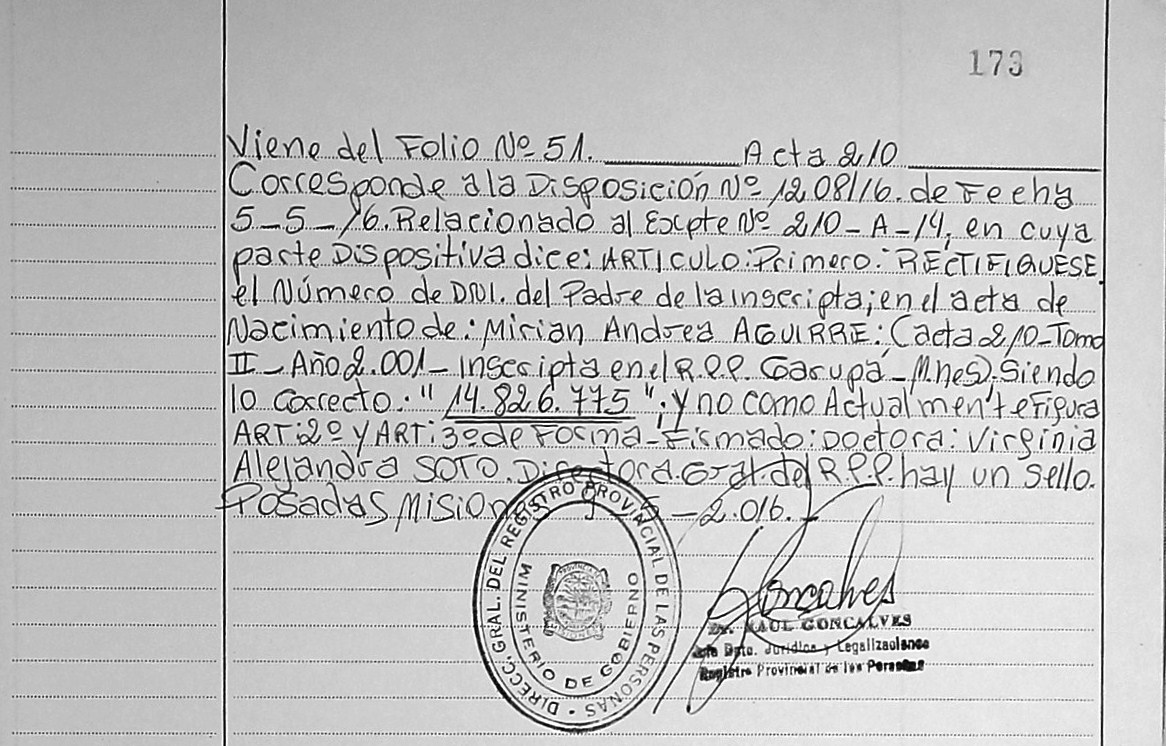 173
Viene del Folio Nº 51. Acta 210
Corresponde a la Disposición Nº 1208/16. de Fecha
5-5-16. Relacionado al Expte Nº 210-A-14, en cuya
parte Dispositiva dice: ARTICULO: Primero: RECTIFIQUESE
el Número de DNI. del Padre de la inscripta; en el acta de
Nacimiento de: Mirian Andrea AGUIRRE: (acta 210-Tomo
II-Año 2.001- Inscripta en el R.P.P. Garupá-Mnes). Siendo
lo correcto: "14.826.775"; y no como Actualmente Figura
ART: 2º y ART: 3º de Forma-Firmado: Doctora: Virginia
Alejandra SOTO. Directora Gral. del R.P.P. hay un sello.
Posadas, Mision - 2.016.-
DIRECC. GRAL. DEL REGISTRO PROVINCIAL DE LAS PERSONAS
MINISTERIO DE GOBIERNO
Goncalves
Dr. RAUL GONCALVES
Jefe Dpto. Jurídico y Legalizaciones
Registro Provincial de las Personas